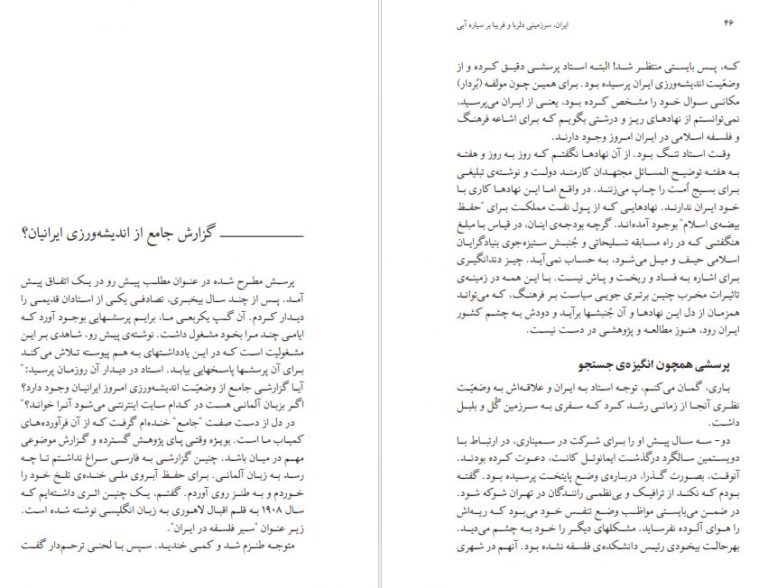 گزارش جامع از اندیشه‌ورزی ایرانیان؟
پرسش مطرح شده در عنوان مطلب پیش رو در یک اتفاق پیش
آمد. پس از چند سال بیخبری، تصادفی یکی از استادان قدیمی را
دیدار کردم. آن گپ یکربعی ما، برایم پرسشهایی بوجود آورد که
ایامی چند مرا بخود مشغول داشت. نوشته‌ی پیش رو، شاهدی بر این
مشغولیت است که در این یادداشتهای به هم پیوسته تلاش می‌کند
برای آن پرسشها پاسخهایی بیابد. استاد در دیدار آن روزمان پرسید:"
آیا گزارشی جامع از وضعیّت اندیشه‌ورزی امروز ایرانیان وجود دارد؟
اگر بزبان آلمانی هست در کدام سایت اینترنتی می‌شود آنرا خواند؟"
در دل از دست صفت "جامع" خنده‌ام گرفت که از آن فرآورده‌های
کمیاب ما است. بویژه وقتی پای پژوهش گسترده و گزارش موضوعی
مهم در میان باشد. چنین گزارشی به فارسی سراغ نداشتم تا چه
رسد به زبان آلمانی. برای حفظ آبروی ملی خنده‌ی تلخ خود را
خوردم و به طنز روی آوردم. گفتم، یک چنین اثری داشته‌ایم که
سال ۱۹۰۸ به قلم اقبال لاهوری به زبان انگلیسی نوشته شده است.
زیر عنوان "سیر فلسفه در ایران".
متوجه طنزم شد و کمی خندید. سپس با لحنی ترحم‌دار گفت
۴۶
ایران، سرزمینی دلربا و فریبا بر سیاره آبی
که، پس بایستی منتظر شد! البته استاد پرسشی دقیق کرده و از
وضعیّت اندیشه‌ورزی ایران پرسیده بود. برای همین چون مولفه (بُردار)
مکانی سوال خود را مشخص کرده بود، یعنی از ایران می‌پرسید،
نمی‌توانستم از نهادهای ریز و درشتی بگویم که برای اشاعه فرهنگ
و فلسفه اسلامی در ایران امروز وجود دارند.
وقت استاد تنگ بود. از آن نهادها نگفتم که روز به روز و هفته
به هفته توضیح المسائل مجتهدان کارمند دولت و نوشته‌ی تبلیغی
برای بسیج اُمت را چاپ می‌زنند. در واقع اما این نهادها کاری با
خود ایران ندارند. نهادهایی که از پول نفت مملکت برای "حفظ
بیضه‌ی اسلام" بوجود آمده‌اند. گرچه بودجه‌ی اینان، در قیاس با مبلغ
هنگفتی که در راه مسابقه تسلیحاتی و جُنبش ستیزه‌جوی بنیادگرایان
اسلامی حیف و میل می‌شود، به حساب نمی‌آید. چیز دندانگیری
برای اشاره به فساد و ریخت و پاش نیست. با این همه در زمینه‌ی
تاثیرات مخرب چنین برتری جویی سیاست بر فرهنگ، که می‌تواند
همزمان از دل این نهادها و آن جُنبشها برآید و دودش به چشم کشور
ایران رود، هنوز مطالعه و پژوهشی در دست نیست.
پرسشی همچون انگیزه‌ی جستجو
باری، گمان می‌کنم، توجه استاد به ایران و علاقه‌اش به وضعیّت
نظری آنجا از زمانی رشد کرد که سفری به سرزمین گُل و بلبل
داشت.
دو- سه سال پیش او را برای شرکت در سمیناری، در ارتباط با
دویستمین سالگرد درگذشت ایمانوئل کانت، دعوت کرده بودند.
آنوقت، بصورت گذرا، درباره‌ی وضع پایتخت پرسیده بود. گفته
بودم که نکند از ترافیک و بی‌نظمی رانندگان در تهران شوکه شود.
در ضمن می‌بایستی مواظب وضع تنفس خود می‌بود که ریه‌اش
را هوای آلوده نفرساید. مشکلهای دیگر را خود به چشم می‌دید.
بهرحالت بیخودی رئیس دانشکده‌ی فلسفه نشده بود. آنهم در شهری